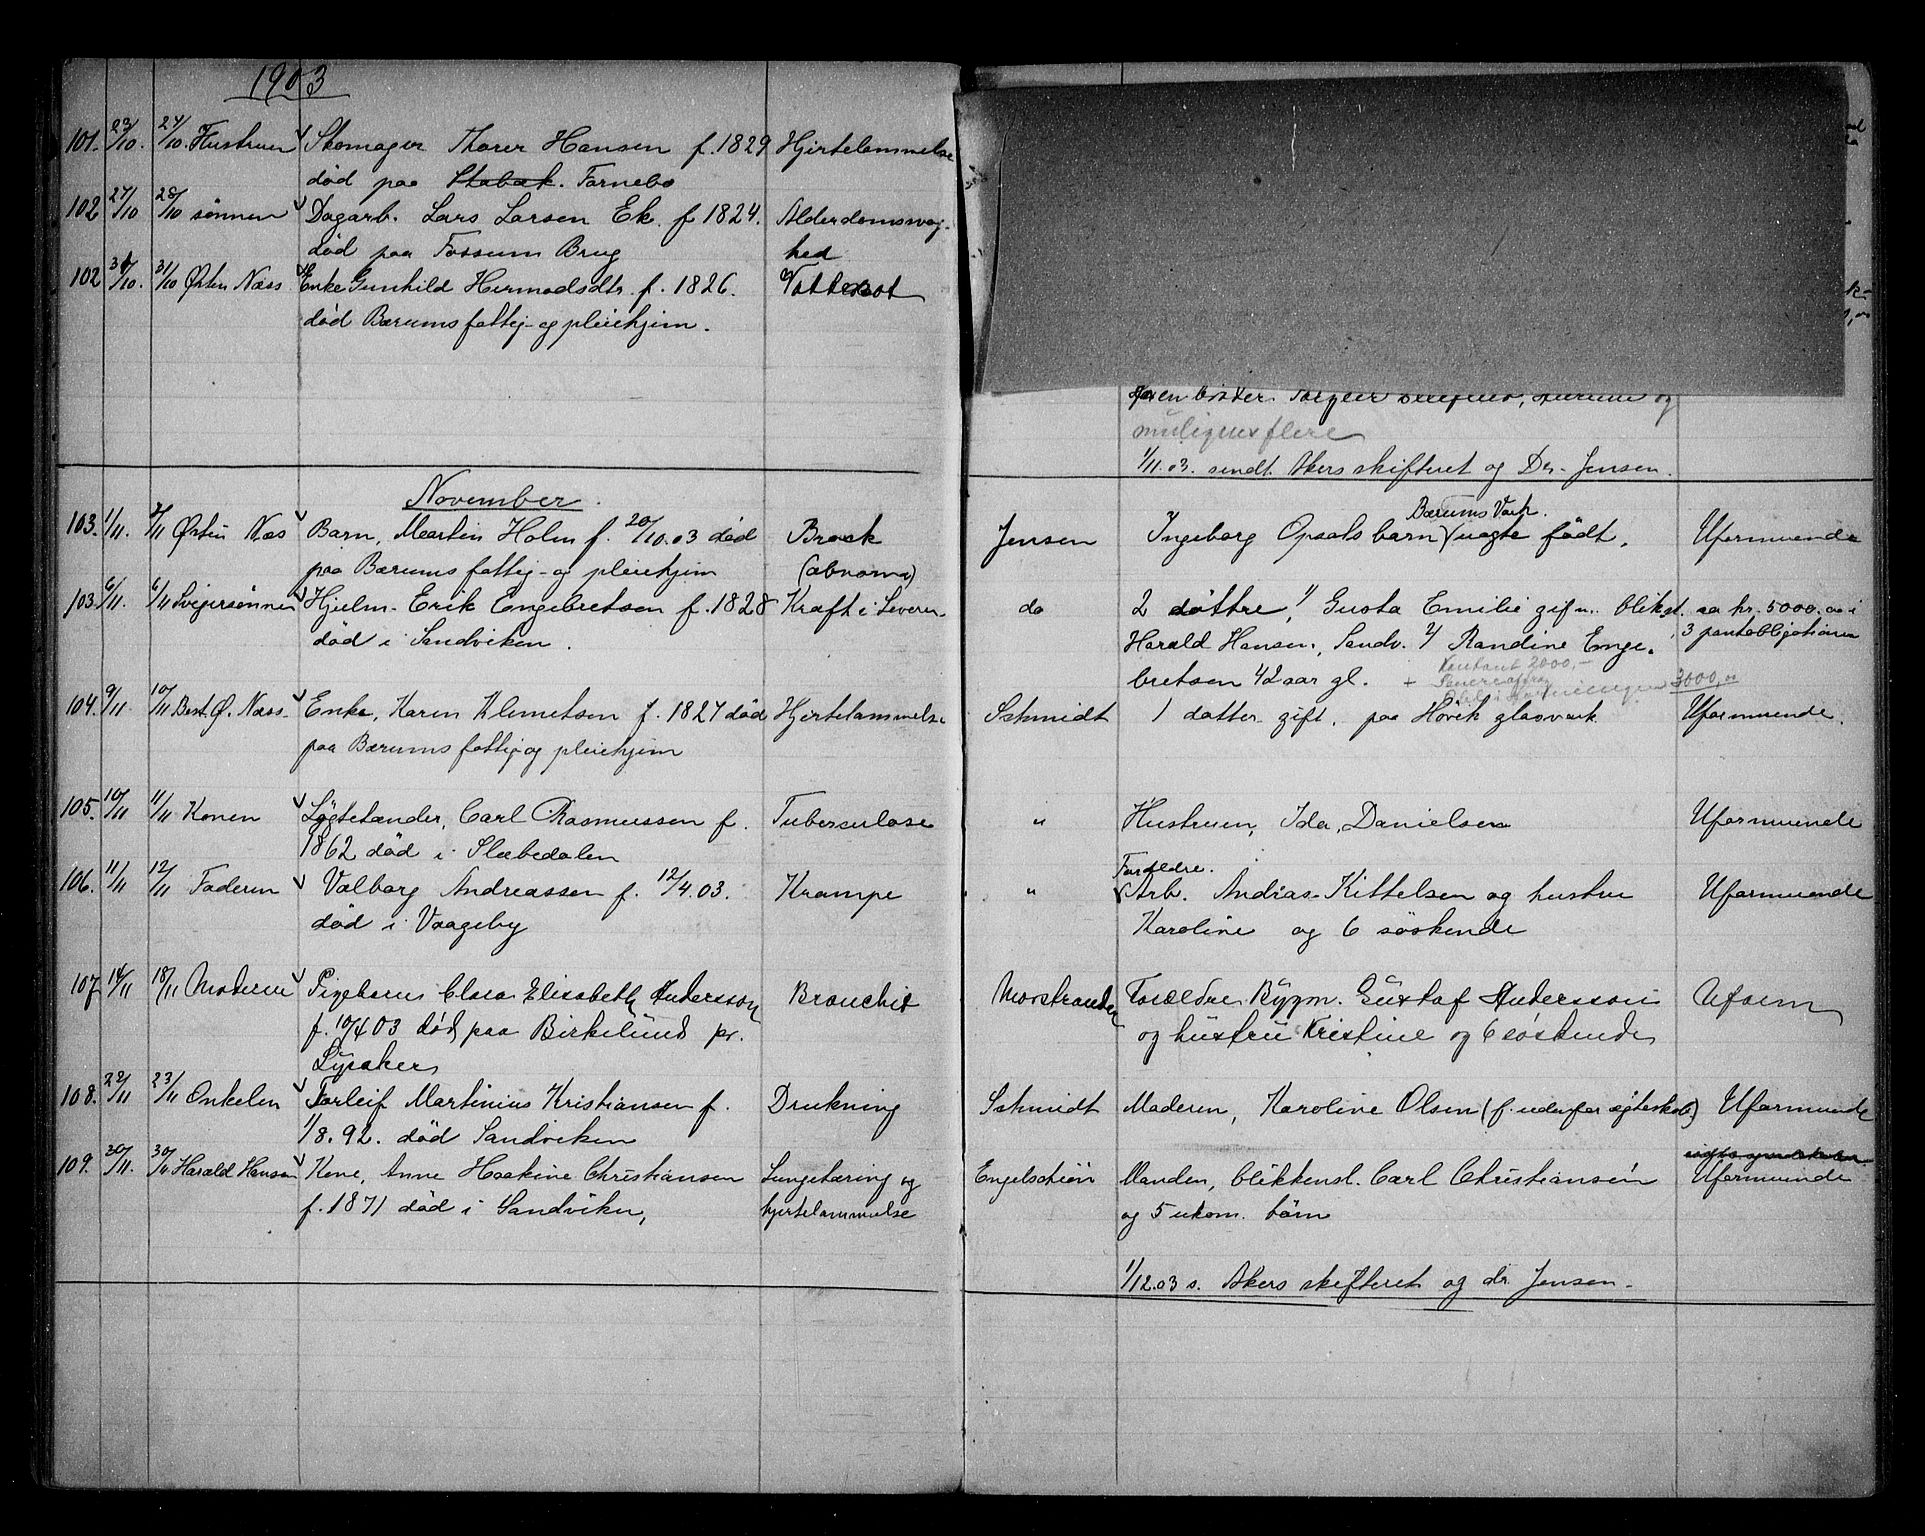 1903
101. 23/10. 24/10. Hustruen Skomager Thorer Hansen f. 1829 Hjertelammelse
død paa Stabæk. Fornebo
102 27/10 28/10 sønnen Dagarb. Lars Larsen Ek. f 1824. Alderdomsvag-
død paa Fossum Brug hed
102 31/10. 31/10 Østen Næss Enke Gunhild Hermodsdtr. f. 1826. Vattersot
død Bærums fattig- og pleiehjem.
muligens flere
1/11.03. sendt Akers skifteret og Dr. Jensen.
November.
Bærums Værk.
103. 1/11. 2/11 Østen Næs Barn, Martin Holm f. 20/10.03 død Brock Jensen Ingeborg Opsals barn (uægte født. Uformuende
paa Bærums fattig- og pleiehjem (abnorm)
103. 6/11. 6/11 Svigersønnen Hjulm. Erik Engebretsen f. 1828 Kræft i Leveren. do 2 døttre, 1/ Gusta Emilie gif m. bliksl. ca kr. 5000.00 i
død i Sandviken. Harald Hansen, Sandv. 2/ Randine Enge- 3 pantobligationer
bretsen 42 aar gl. + Kontant 2000,-
3000,00
104. 9/11 10/11 Best. Ø. Næss. Enke, Karen Klemetsen f. 1827 død Hjertelammelse Schmidt 1 datter gift. paa Høvik glasværk Uformuende.
paa Bærums fattig og pleiehjem
105. 10/11 11/11 Konen Løgtetænder, Carl Rasmussen f. Tuberculose " Hustruen, Ida, Danielsen Uformuende
1862 død i Slæbedalen
Forældre.
106. 11/11 12/11 Faderen Valborg Andreassen f. 12/4.03. Krampe " Arb. Andras Kittelsen og hustru Uformuende
død i Vaageby Karoline og 6 søskende
107 14/11 18/11 Moderen Pigebarn Clara Elisabeth Andersson Bronchit Morstrander Forældre Bygm. Gustaf Andersson Uform
f. 10/4 03 død paa Birkelund pr. og hustru Kristine og 6 søskende
Lysaker
108. 22/11 23/11 Onkelen Torleif Martinius Kristiansen f. Drukning Schmidt Moderen, Karoline Olsen (f. udenfor ægtesk.) Uformuende
1/8.92. død Sandviken
109. 30/11. 30/11 Harald Hansen Kone, Anne Haakine Christiansen Lungetæring og Engelschiøn Manden, blikkensl. Carl Christiansen Uformuende
f. 1871 død i Sandviken, hjertelammelse og 5 ukom. børn
1/12.03 s. Akers skifteret og dr. Jensen.